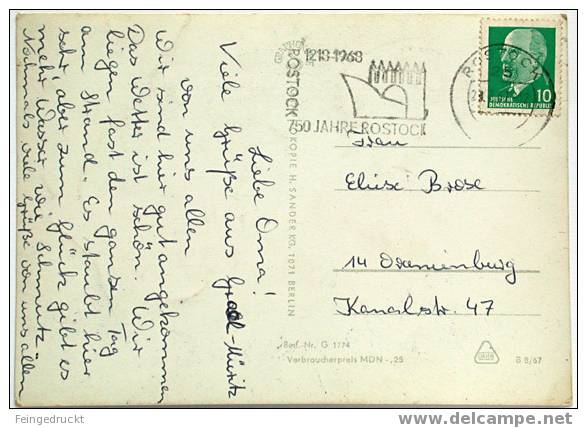 Liebe Oma!
Viele Grüße aus Graal-Müritz
von uns allen
Wir sind hier gut angekommen
Das Wetter ist schön. Wir
liegen fast den ganzen Tag
am Strand. Es staubt hier
sehr aber zum Glück gibt es
mehr Wasser wie Schmutz
Nochmals viele Grüße von uns allen
1218-1968
ROSTOCK
750 JAHRE ROSTOCK
ROSTOCK
25
10
DEUTSCHE
DEMOKRATISCHE REPUBLIK
Frau
Eliese Brose
14 Oranienburg
Kanalstr. 47
KOPIE H. SANDER KG, 1071 BERLIN
Best.-Nr. G 1774
Verbraucherpreis MDN -,25
B 8/67
Feingedruckt
www.delcampe.net